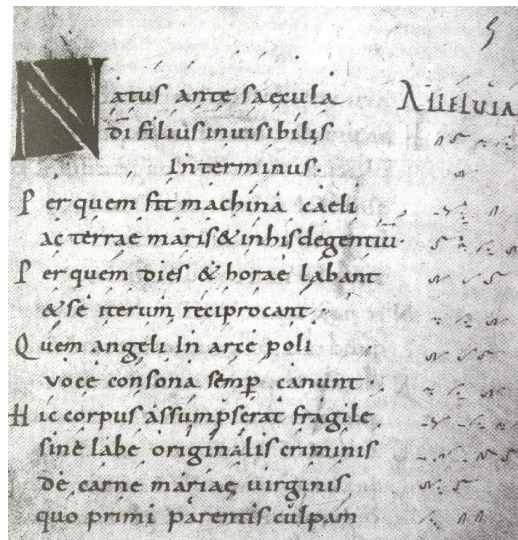 5
Natus ante saecula Alleluia
dī filius inuisibilis
Interminus·
Per quem fit machina caeli
ac terrae maris & in his degentiū·
Per quem dies & horae labant
& se iterum reciprocant·
Quem angeli In arce poli
uoce consona semp̄ canunt·
Hic corpus assumpserat fragile
sine labe originalis criminis
de carne mariae uirginis
quo primi parentis culpam